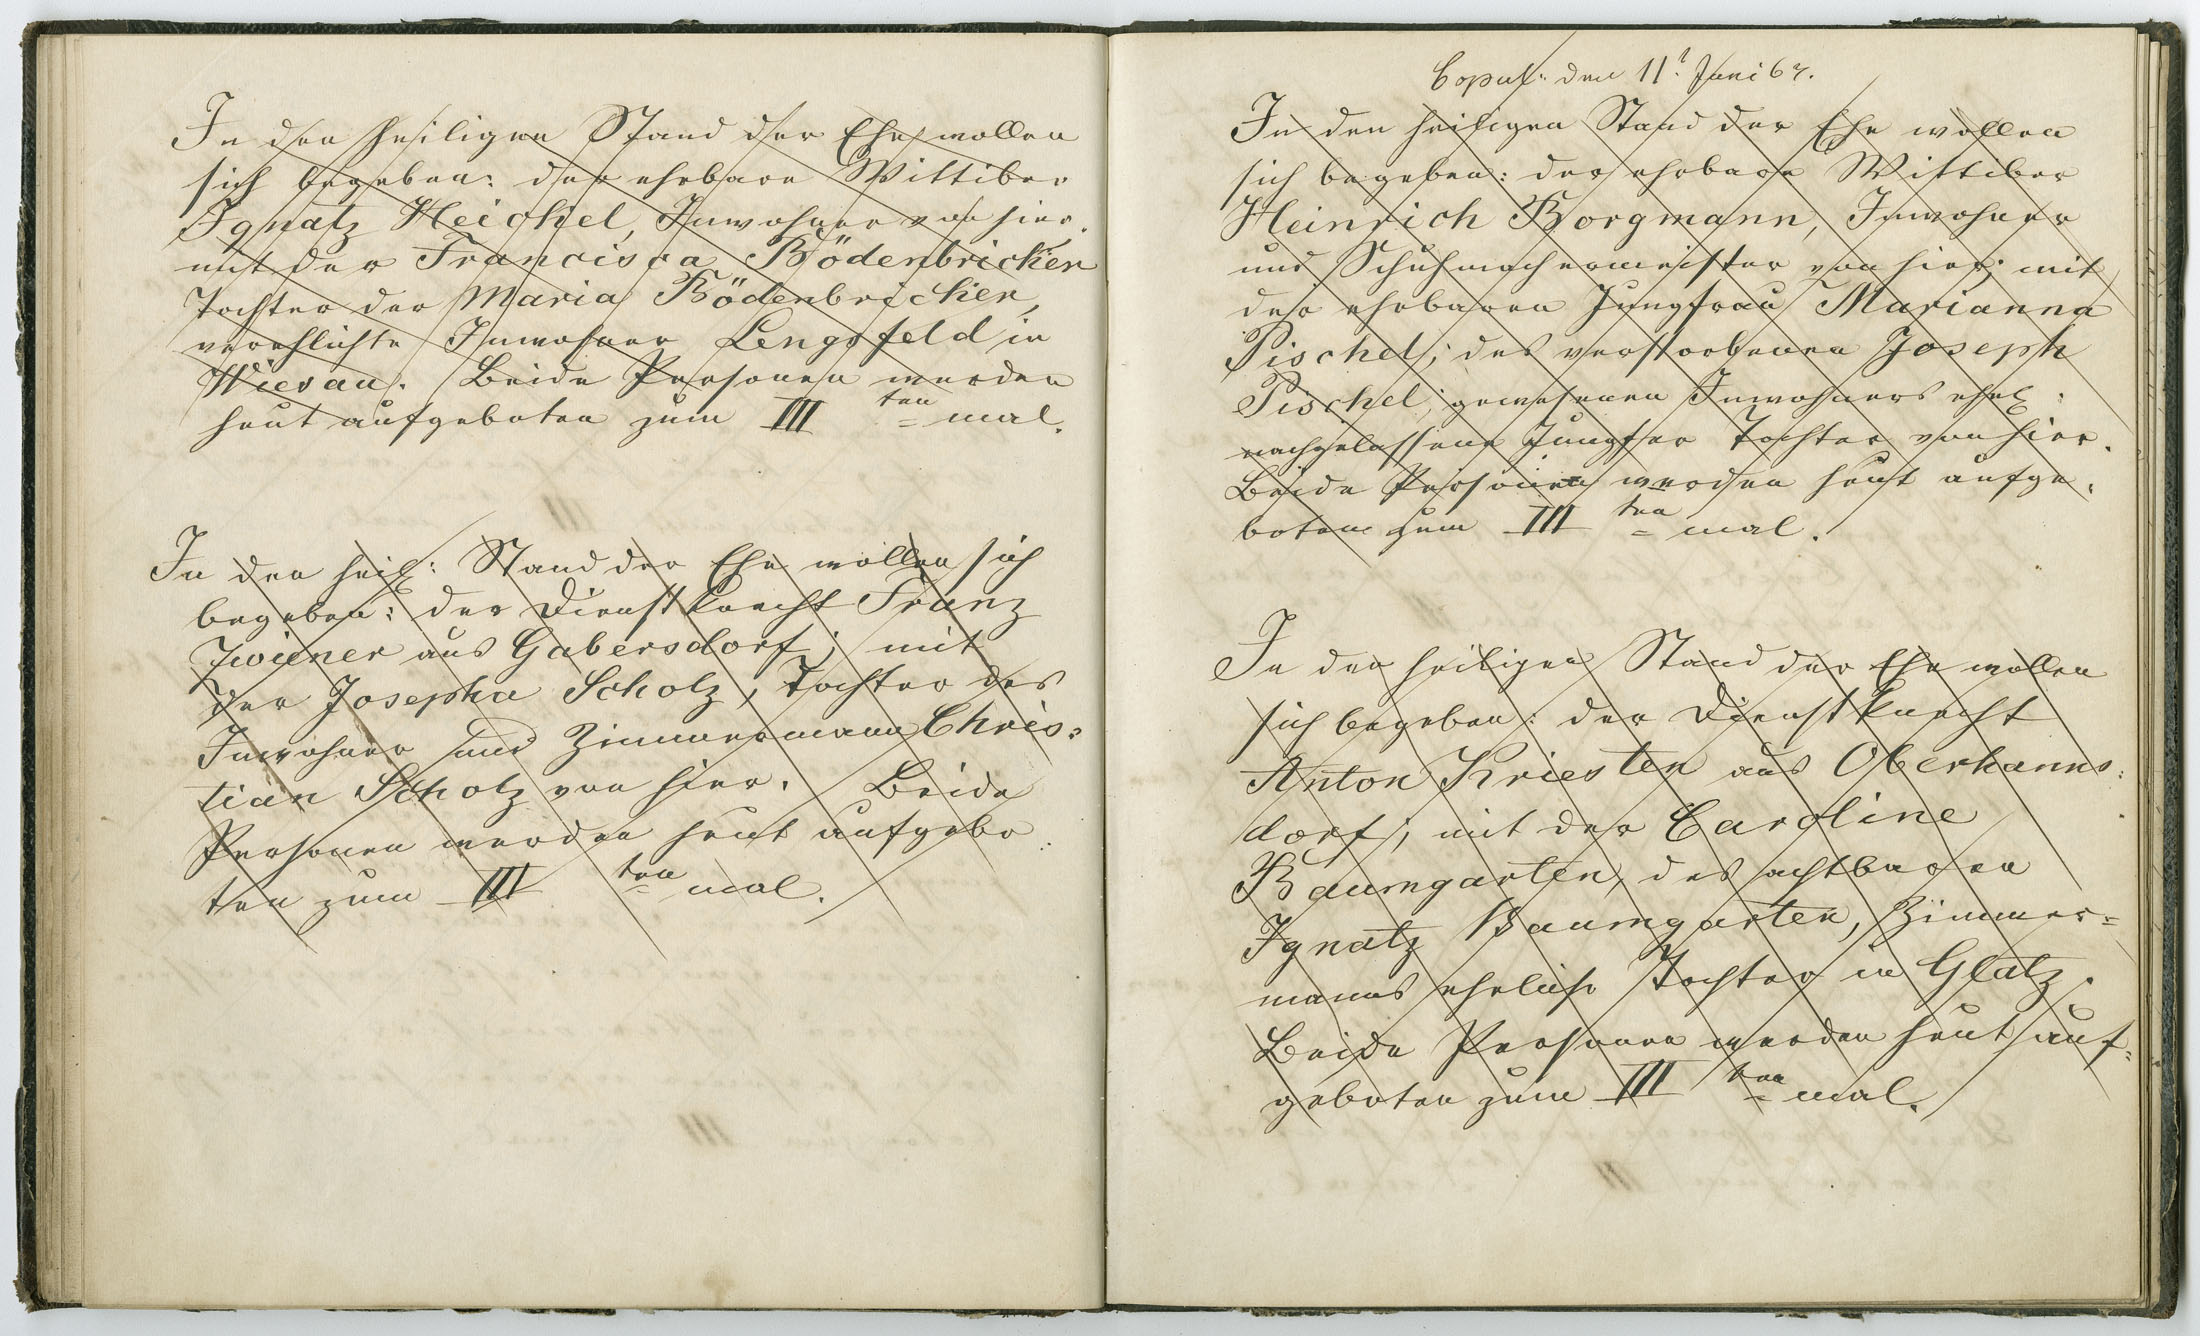 In den heiligen Stand der Ehe wollen
sich begeben: der ehrbare Wittiber
Ignatz Heichel, Inwohner von hier.
mit der Francisca Bödenbricker
Tochter der Maria Bödenbricker,
verehlichte Inwohner Lengsfeld in
Wiesau. Beide Personen werden
heut aufgeboten zum III ten mal.
In den heil: Stand der Ehe wollen sich
begeben: der Dienstknecht Franz
aus Gabersdorf; mit
der Josepha Scholz, Tochter des
Inwohner und Zimmermann Chris:
tian Scholz von hier. Beide
Personen werden heut aufgebo
ten zum III ten mal.
Copul: den 11t Juni
In den heiligen Stand der Ehe wollen
sich begeben: der ehrbare Wittiber
Heinrich Borgmann, Inwohner
und Schuhmachermeister von hier; mit
der ehrbaren Jungfrau Marianna
Pischel; des verstorbenen Joseph
Pischel; gewesenen Inwohners ehel:
nachgelassene Jungfer Tochter von hier.
Beide Personen werden heut aufge:
boten zum III ten mal.
In den heiligen Stand der Ehe wollen
sich begeben: der Dienstknecht
Anton Kriesten aus Oberhanns:
dorf; mit der Caroline
Baumgarten, des achtbaren
Ignatz Baumgarten, Zimmer=
manns eheliche Tochter in Glatz.
Beide Personen werden heut auf=
geboten zum III ten mal.